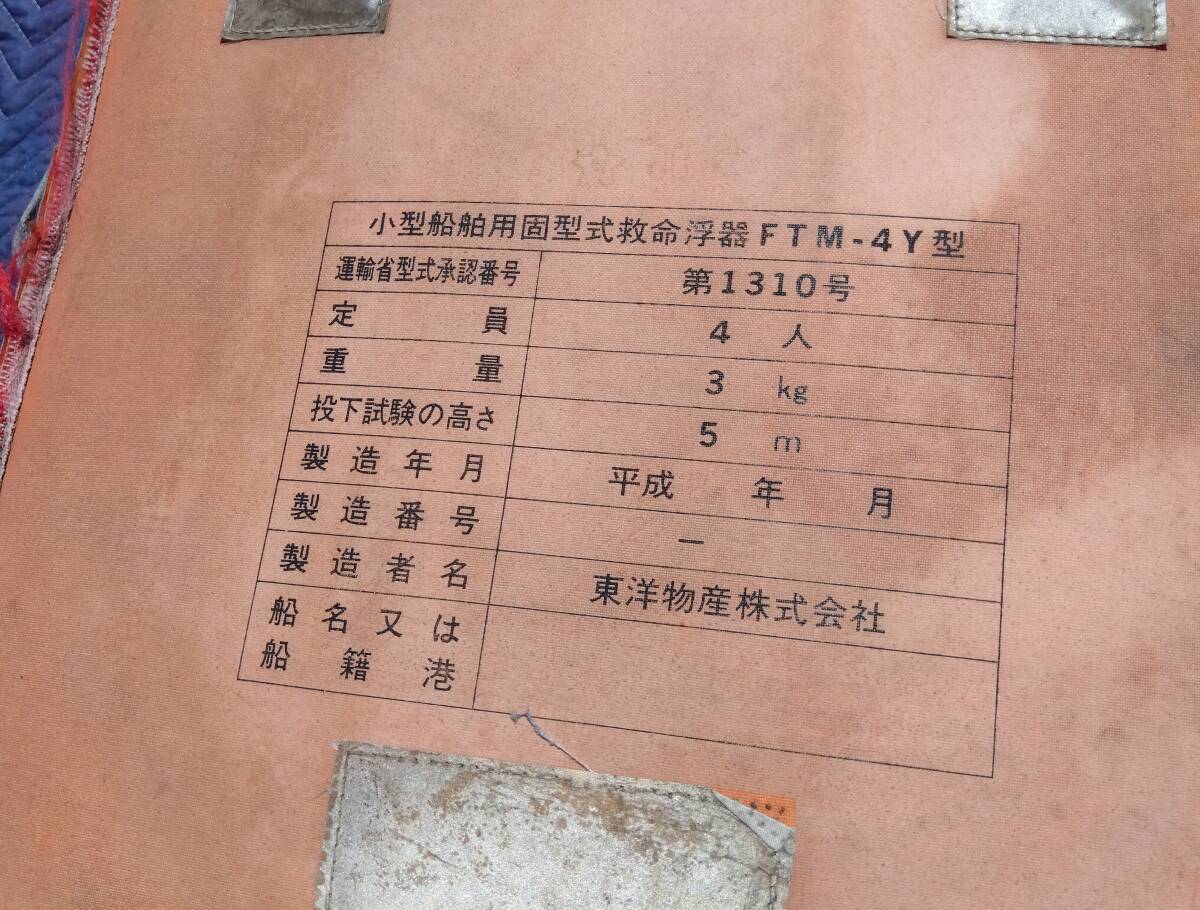 小型船舶用固型式救命浮器FTM-4Y型
運輸省型式承認番号 第1310号
定員 4人
重量 3kg
投下試験の高さ 5m
製造年月 平成 年 月
製造番号 －
製造者名 東洋物産株式会社
船名又は
船籍港